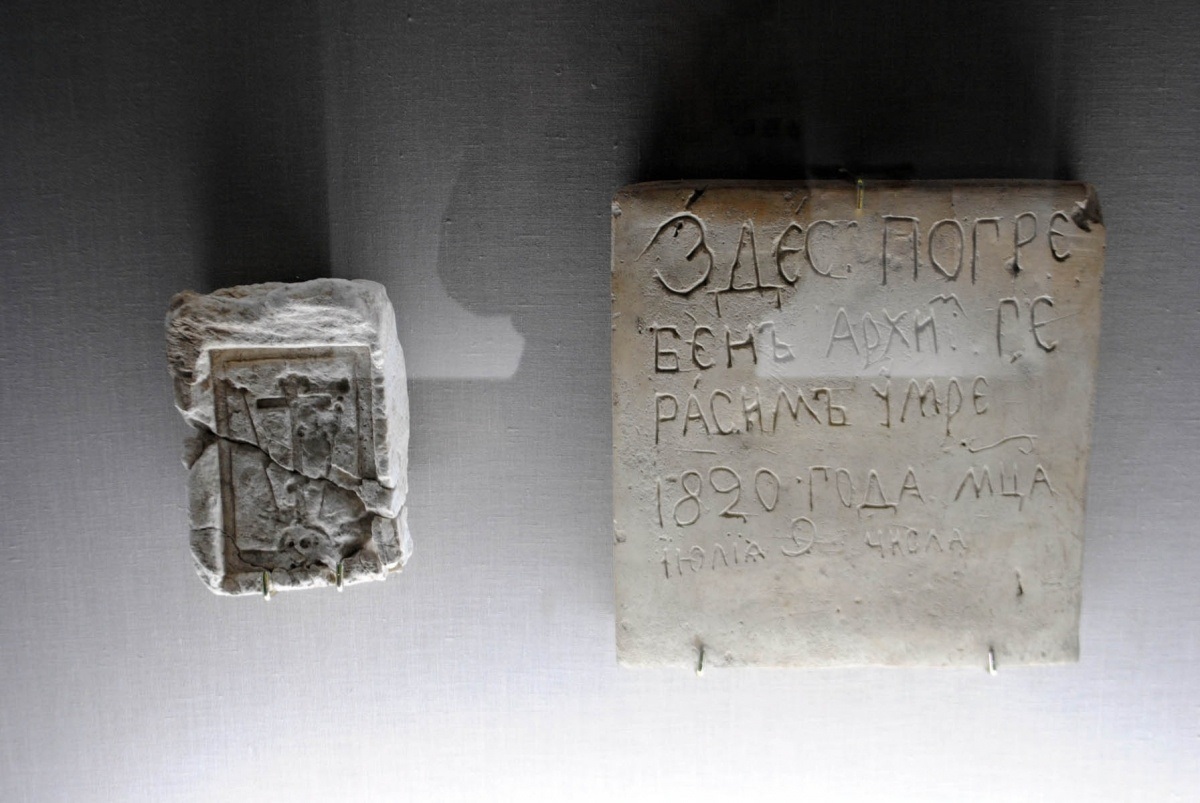 ЗДЕС ПОГРЕ
БЕНЪ АРХИМ: ГЕ
РАСИМЪ УМРЕ
1820 ГОДА МЦА
ІЮЛІА 9 ЧИСЛА